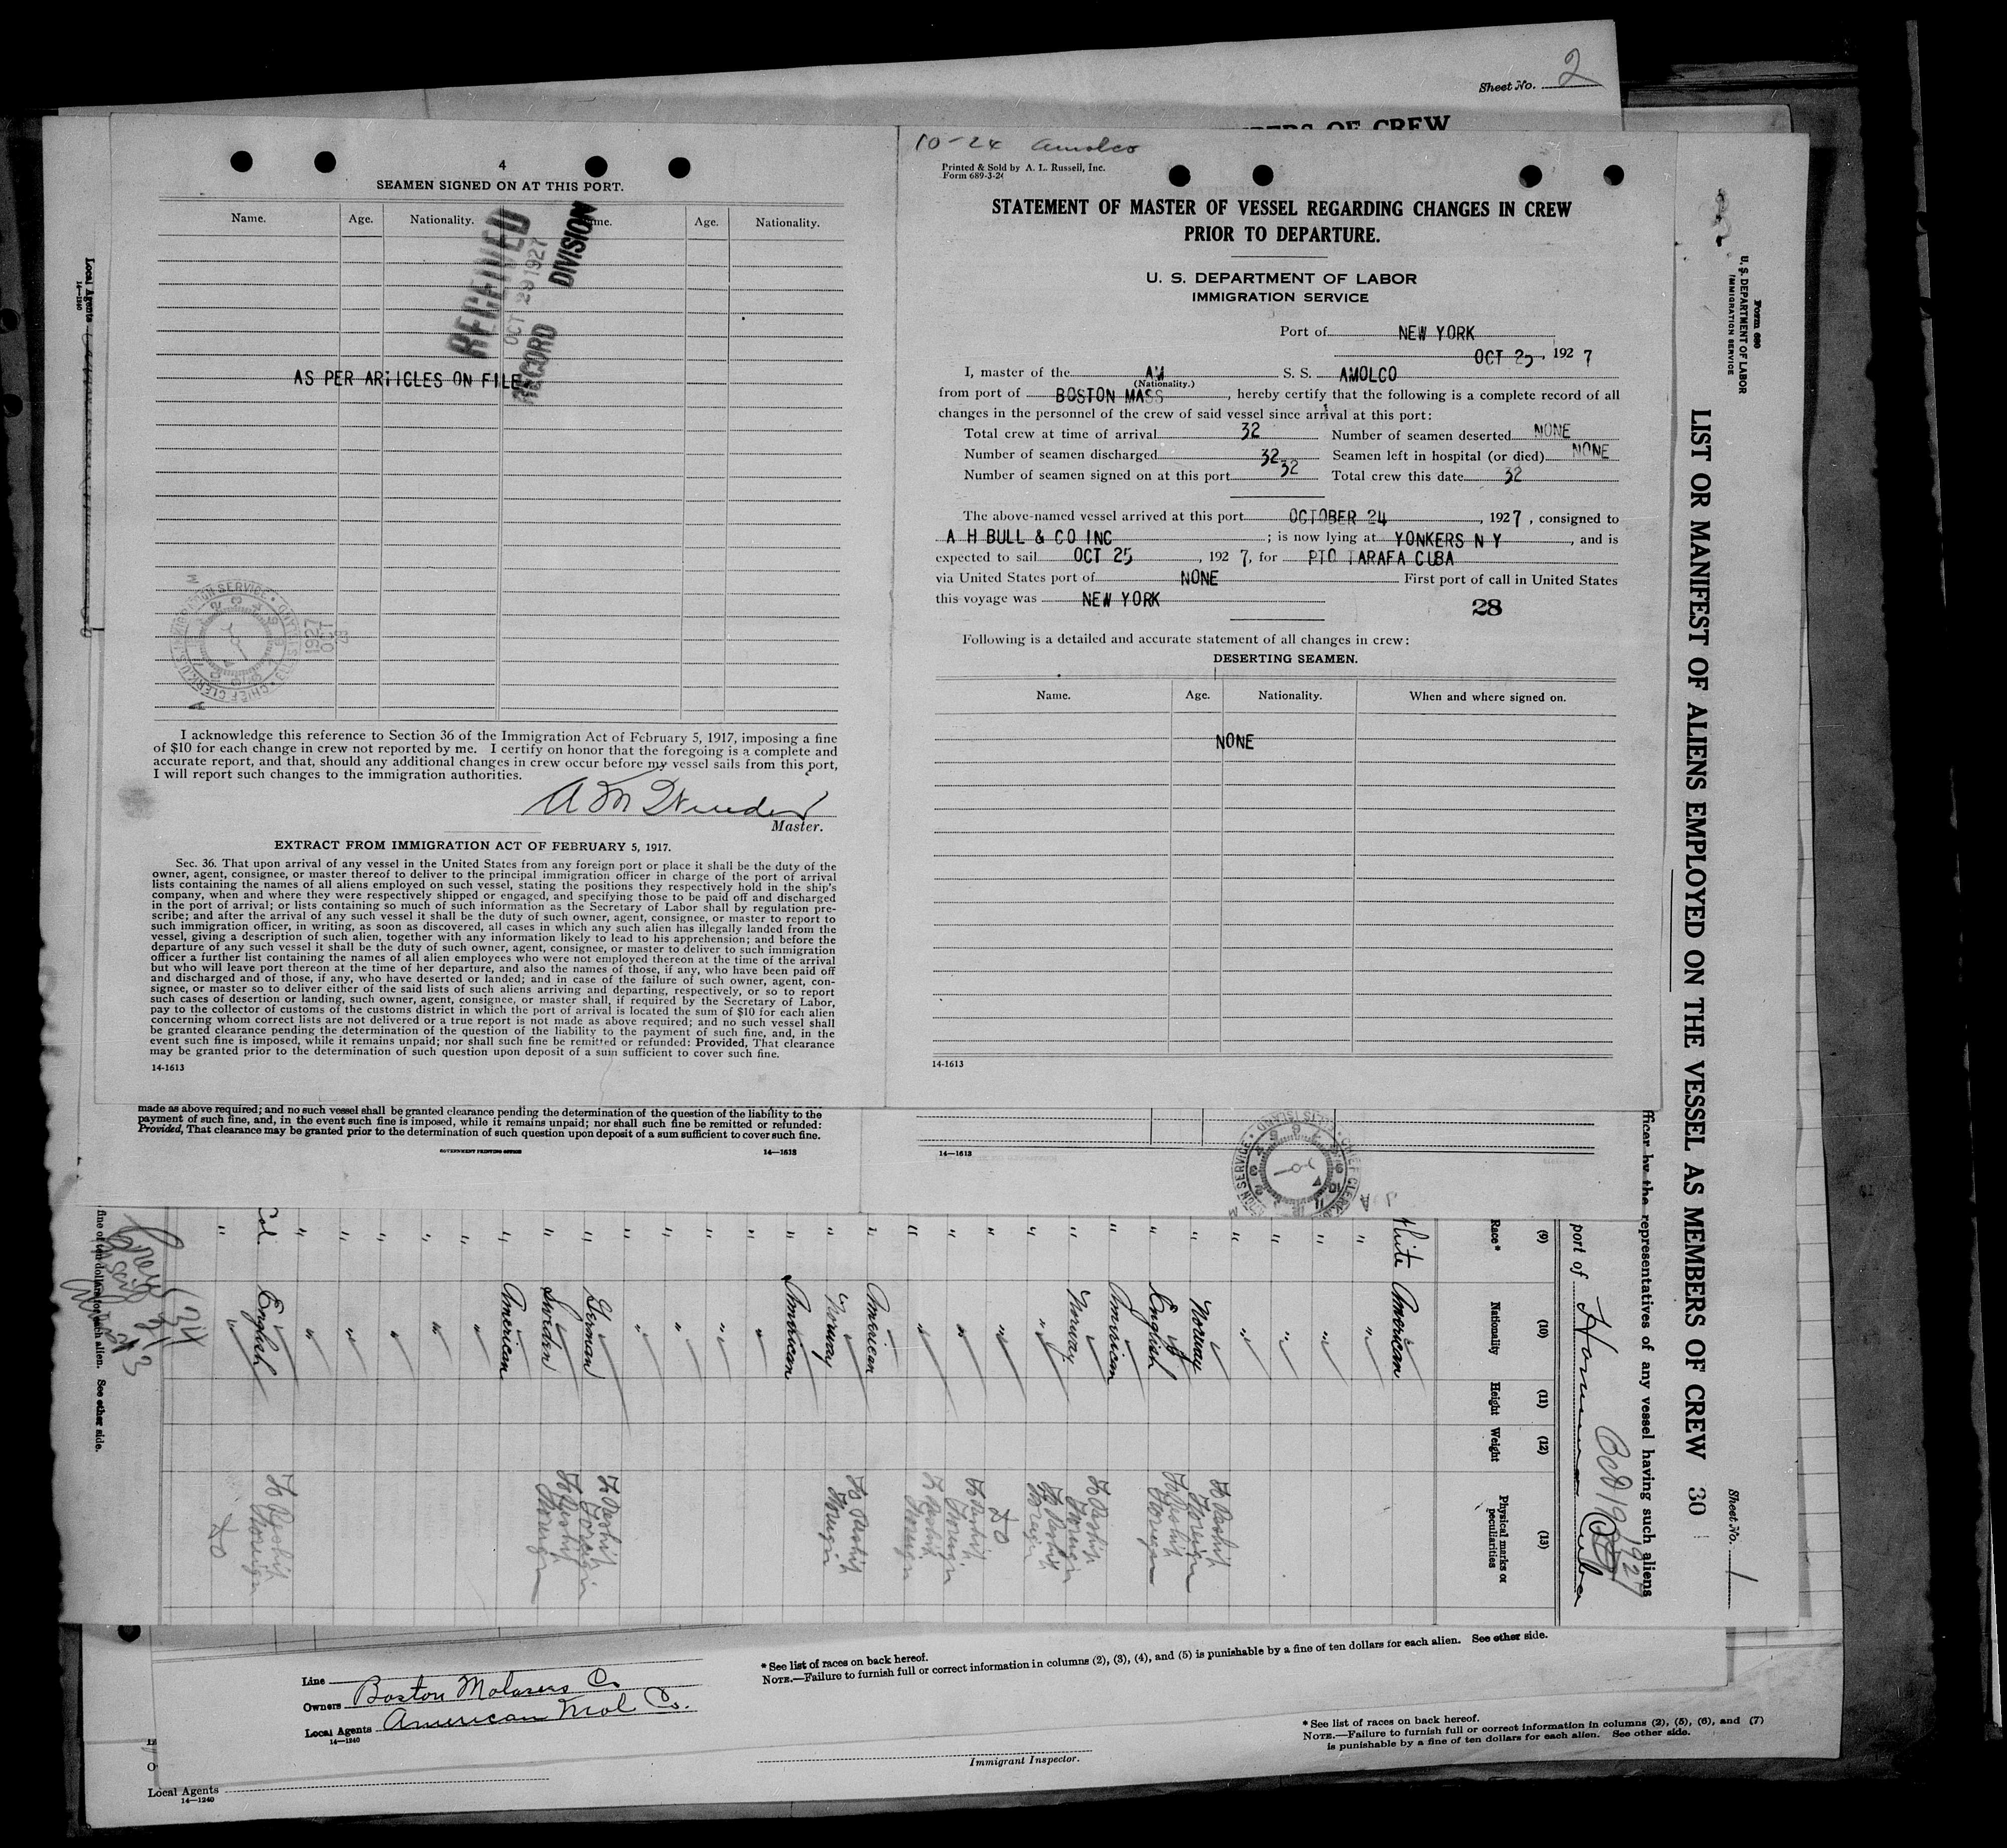 Sheet No. 2
4
SEAMEN SIGNED ON AT THIS PORT.
Name. Age. Nationality. Name. Age. Nationality.
RECEIVED
OCT 29 1927
RECORD DIVISION
AS PER ARTICLES ON FILE
I acknowledge this reference to Section 36 of the Immigration Act of February 5, 1917, imposing a fine
of $10 for each change in crew not reported by me. I certify on honor that the foregoing is a complete and
accurate report, and that, should any additional changes in crew occur before my vessel sails from this port,
I will report such changes to the immigration authorities.
Master.
EXTRACT FROM IMMIGRATION ACT OF FEBRUARY 5, 1917.
Sec. 36. That upon arrival of any vessel in the United States from any foreign port or place it shall be the duty of the
owner, agent, consignee, or master thereof to deliver to the principal immigration officer in charge of the port of arrival
lists containing the names of all aliens employed on such vessel, stating the positions they respectively hold in the ship's
company, when and where they were respectively shipped or engaged, and specifying those to be paid off and discharged
in the port of arrival; or lists containing so much of such information as the Secretary of Labor shall by regulation pre-
scribe; and after the arrival of any such vessel it shall be the duty of such owner, agent, consignee, or master to report to
such immigration officer, in writing, as soon as discovered, all cases in which any such alien has illegally landed from the
vessel, giving a description of such alien, together with any information likely to lead to his apprehension; and before the
departure of any such vessel it shall be the duty of such owner, agent, consignee, or master to deliver to such immigration
officer a further list containing the names of all alien employees who were not employed thereon at the time of the arrival
but who will leave port thereon at the time of her departure, and also the names of those, if any, who have been paid off
and discharged and of those, if any, who have deserted or landed; and in case of the failure of such owner, agent, con-
signee, or master so to deliver either of the said lists of such aliens arriving and departing, respectively, or so to report
such cases of desertion or landing, such owner, agent, consignee, or master shall, if required by the Secretary of Labor,
pay to the collector of customs of the customs district in which the port of arrival is located the sum of $10 for each alien
concerning whom correct lists are not delivered or a true report is not made as above required; and no such vessel shall
be granted clearance pending the determination of the question of the liability to the payment of such fine, and, in the
event such fine is imposed, while it remains unpaid; nor shall such fine be remitted or refunded: Provided, That clearance
may be granted prior to the determination of such question upon deposit of a sum sufficient to cover such fine.
14-1613
10-24 Amolco
Printed & Sold by A. L. Russell, Inc.
Form 689-3-26
STATEMENT OF MASTER OF VESSEL REGARDING CHANGES IN CREW
PRIOR TO DEPARTURE.
U. S. DEPARTMENT OF LABOR
IMMIGRATION SERVICE
Port of NEW YORK
OCT 25, 1927
I, master of the AM S. S. AMOLCO
(Nationality.)
from port of BOSTON MASS, hereby certify that the following is a complete record of all
changes in the personnel of the crew of said vessel since arrival at this port:
Total crew at time of arrival 32 Number of seamen deserted NONE
Number of seamen discharged 32 Seamen left in hospital (or died) NONE
Number of seamen signed on at this port 32 Total crew this date 32
The above-named vessel arrived at this port OCTOBER 24, 1927, consigned to
A H BULL & CO INC; is now lying at YONKERS N Y, and is
expected to sail OCT 25, 1927, for PTO TARAFA CUBA
via United States port of NONE First port of call in United States
this voyage was NEW YORK 28
Following is a detailed and accurate statement of all changes in crew:
DESERTING SEAMEN.
Name. Age. Nationality. When and where signed on.
NONE
14-1613
made as above required; and no such vessel shall be granted clearance pending the determination of the question of the liability to the
payment of such fine, and, in the event such fine is imposed, while it remains unpaid; nor shall such fine be remitted or refunded:
Provided, That clearance may be granted prior to the determination of such question upon deposit of a sum sufficient to cover such fine.
GOVERNMENT PRINTING OFFICE 14—1613
14—1613
Form 680
U. S. DEPARTMENT OF LABOR
IMMIGRATION SERVICE
Sheet No. 1
LIST OR MANIFEST OF ALIENS EMPLOYED ON THE VESSEL AS MEMBERS OF CREW 30
officer by the representatives of any vessel having such aliens
port of
(9) (10) (11) (12) (13)
Race* Nationality Height Weight Physical marks or peculiarities
White American
" "
" "
" "
" "
" Norway
" English
" American
" Norway
" "
" "
" "
" "
" American
" Norway
" American
" "
" "
" "
" "
" German
" Sweden
" American
" "
" "
" "
" "
" "
Col. English
" "
fine of ten dollars for each alien. See other side.
Local Agents
14—1240
Line
Owners Boston Molasses Co
Local Agents American Mol Co.
14—1240
* See list of races on back hereof.
NOTE.—Failure to furnish full or correct information in columns (2), (3), (4), and (5) is punishable by a fine of ten dollars for each alien. See other side.
* See list of races on back hereof.
NOTE.—Failure to furnish full or correct information in columns (2), (5), (6), and (7)
is punishable by a fine of ten dollars for each alien. See other side.
Immigrant Inspector.
Local Agents
14—1240